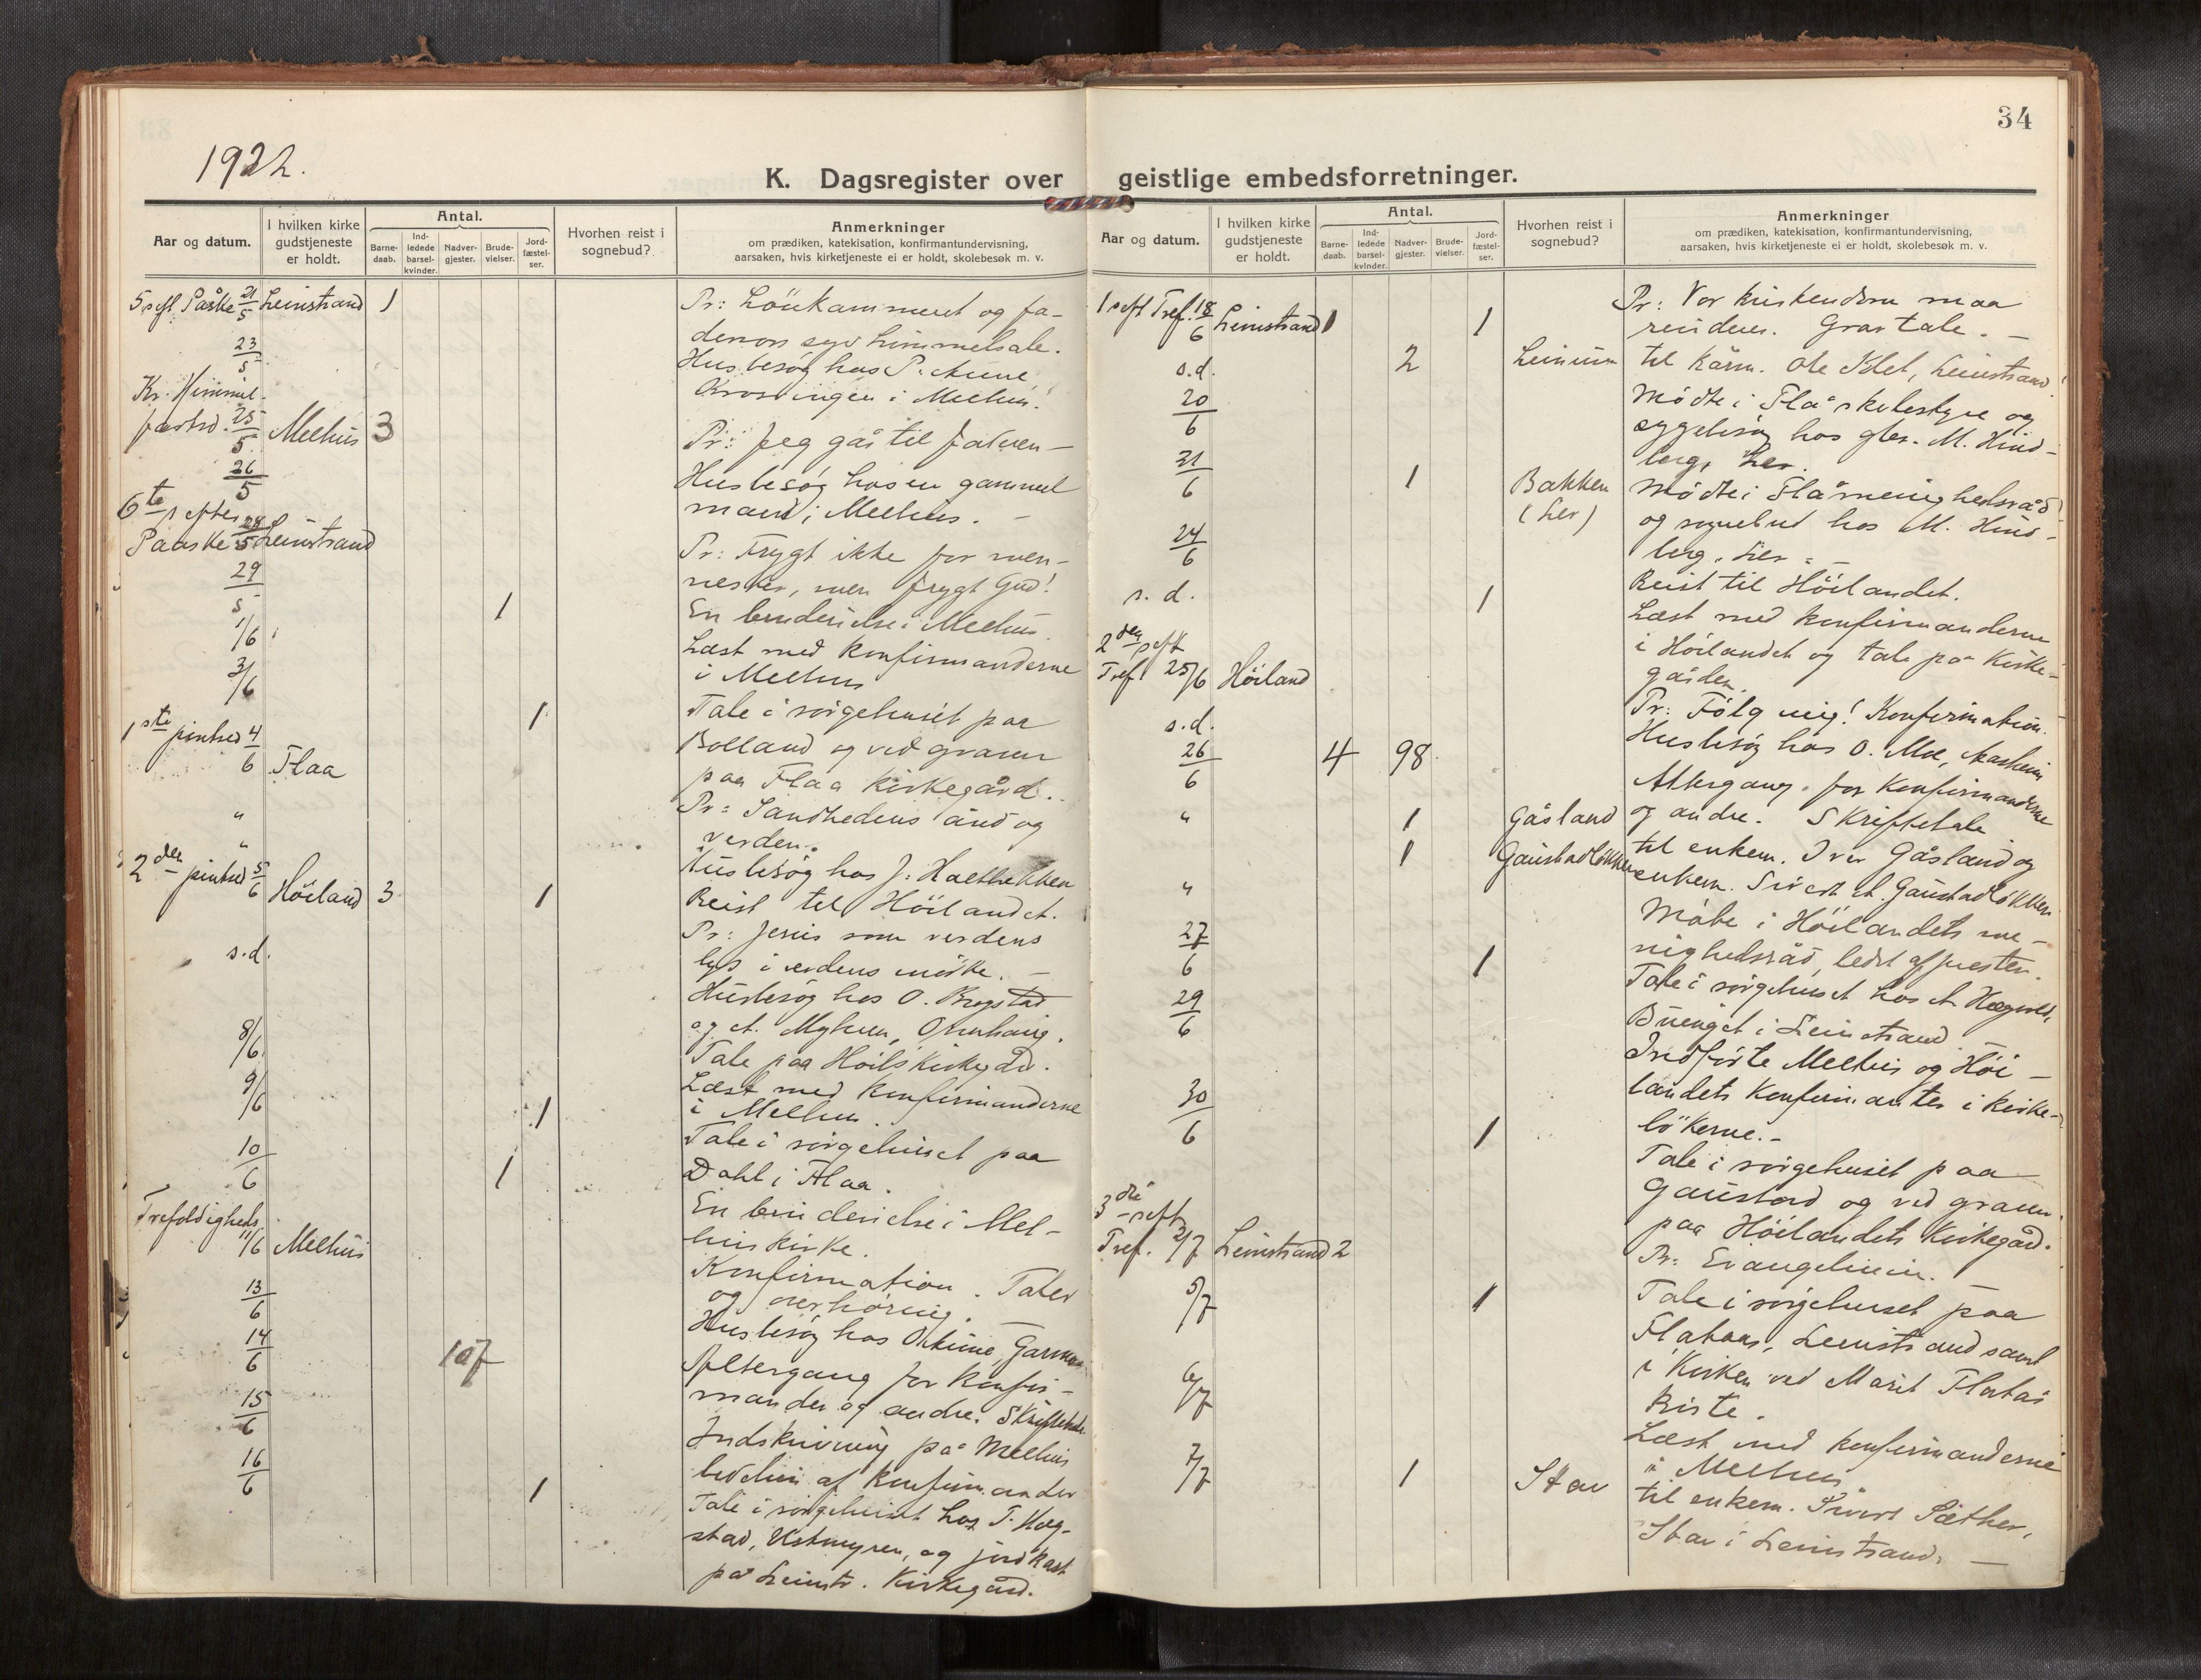 1922.
34
K. Dagsregister over geistlige embedsforretninger.
Aar og datum.
I hvilken kirke gudstjeneste er holdt.
Antal.
Barne-daab.
Ind-ledede barsel-kvinder.
Nadver-gjester.
Brude-vielser.
Jord-fæstel-ser.
Hvorhen reist i sognebud?
Anmerkninger
om prædiken, katekisation, konfirmantundervisning,
aarsaken, hvis kirketjeneste ei er holdt, skolebesøk m. v.
5 s eft. Påske 21/5 Leinstrand 1 Pr: Lönkammeret og fa-
derens himmelsale.
23/5 Husbesög hos P. Aune,
i Melhus.
Kr. Himmel-
fartsd. 25/5 Melhus 3 Pr: Jeg går til faderen —
26/5 Husbesög hos en gammel
mand i Melhus. —
6te s efter
Paaske 28/5 Leinstrand Pr: Frygt ikke for men-
nesker, men frygt Gud!
29/5 1 En brudevielse i Melhus.
1/6 Læst med konfirmanderne
i Melhus
3/6 1 Tale i sörgehuset paa
Bolland og ved graven
paa Flaa kirkegård.
1ste pintsed 4/6 Flaa Pr: Sandhedens ånd og
verden.
" Husbesög hos J.
" Reist til Höilandet.
2den pintsed 5/6 Höiland 3 1 Pr: Jesus som verdens
lys i verdens mörke. —
s.d. Husbesög hos O. Krogstad
og A. Myhren,
Tale paa Höil. kirkegård.
8/6 Læst med konfirmanderne
i Melhus.
9/6 1 Tale i sörgehuset paa
Dahl i Flaa.
10/6 1 En brudevielse i Mel-
hus kirke.
Trefoldigheds
11/6 Melhus Konfirmation. Taler
og overhöring.
13/6 Husbesög hos
14/6 107 Altergang for konfir-
mander og andre. Skriftetale
15/6 Indskrivning på Melhus
bedehus af konfirmander
16/6 1 Tale i sörgehuset hos T. Hög-
stad, Vestmyren, og jordkast
på Leinstr. Kirkegård.
Aar og datum.
I hvilken kirke gudstjeneste er holdt.
Antal.
Barne-daab.
Ind-ledede barsel-kvinder.
Nadver-gjester.
Brude-vielser.
Jord-fæstel-ser.
Hvorhen reist i sognebud?
Anmerkninger
om prædiken, katekisation, konfirmantundervisning,
aarsaken, hvis kirketjeneste ei er holdt, skolebesøk m. v.
1 s eft Tref. 18/6 Leinstrand 1 1 Pr: Vor kristendom maa
Gravtale. —
s.d. 2 Leinum til kårm. Ole Klet, Leinstrand
20/6 Mödte i Flå skolestyre og
sygebesög hos M. Hind-
berg, Ler.
21/6 1 Bakken (Ler) Mödte i Flå menighedsråd
og sognebud hos M. Hind-
berg, Ler. —
24/6 Reist til Höilandet.
s. d. 1 Læst med konfirmanderne
i Höilandet og tale på kirke-
gården.
2den s eft
Tref 25/6 Höiland Pr: Fölg mig! Konfirmation.
s.d. Husbesög hos O. Moe,
26/6 4 98 Altergang for konfirmanderne
og andre. Skriftetale
" 1 Gåsland til enkem. Iver Gåsland og
" 1 Gaustadløkken enkem. Sivert Gaustadløkken
27/6 Möte i Höilandets me-
nighedsråd, ledet af presten.
29/6 1 Tale i sörgehuset hos
Buenget i Leinstrand
Indförte Melhus og Höi-
landets konfirmanter i kirke-
bökerne. —
30/6 1 Tale i sörgehuset paa
Gaustad og ved graven
paa Höilandets kirkegård.
3die s eft
Tref. 2/7 Leinstrand 2 Pr: Evangelium. —
5/7 1 Tale i sörgehuset paa
Flataas, Leinstrand samt
i kirken ved Marit Flatås
kiste.
6/7 Læst med konfirmanderne
i Melhus
7/7 1 Stav til enkem. Sivert Sæther,
Stav i Leinstrand. —